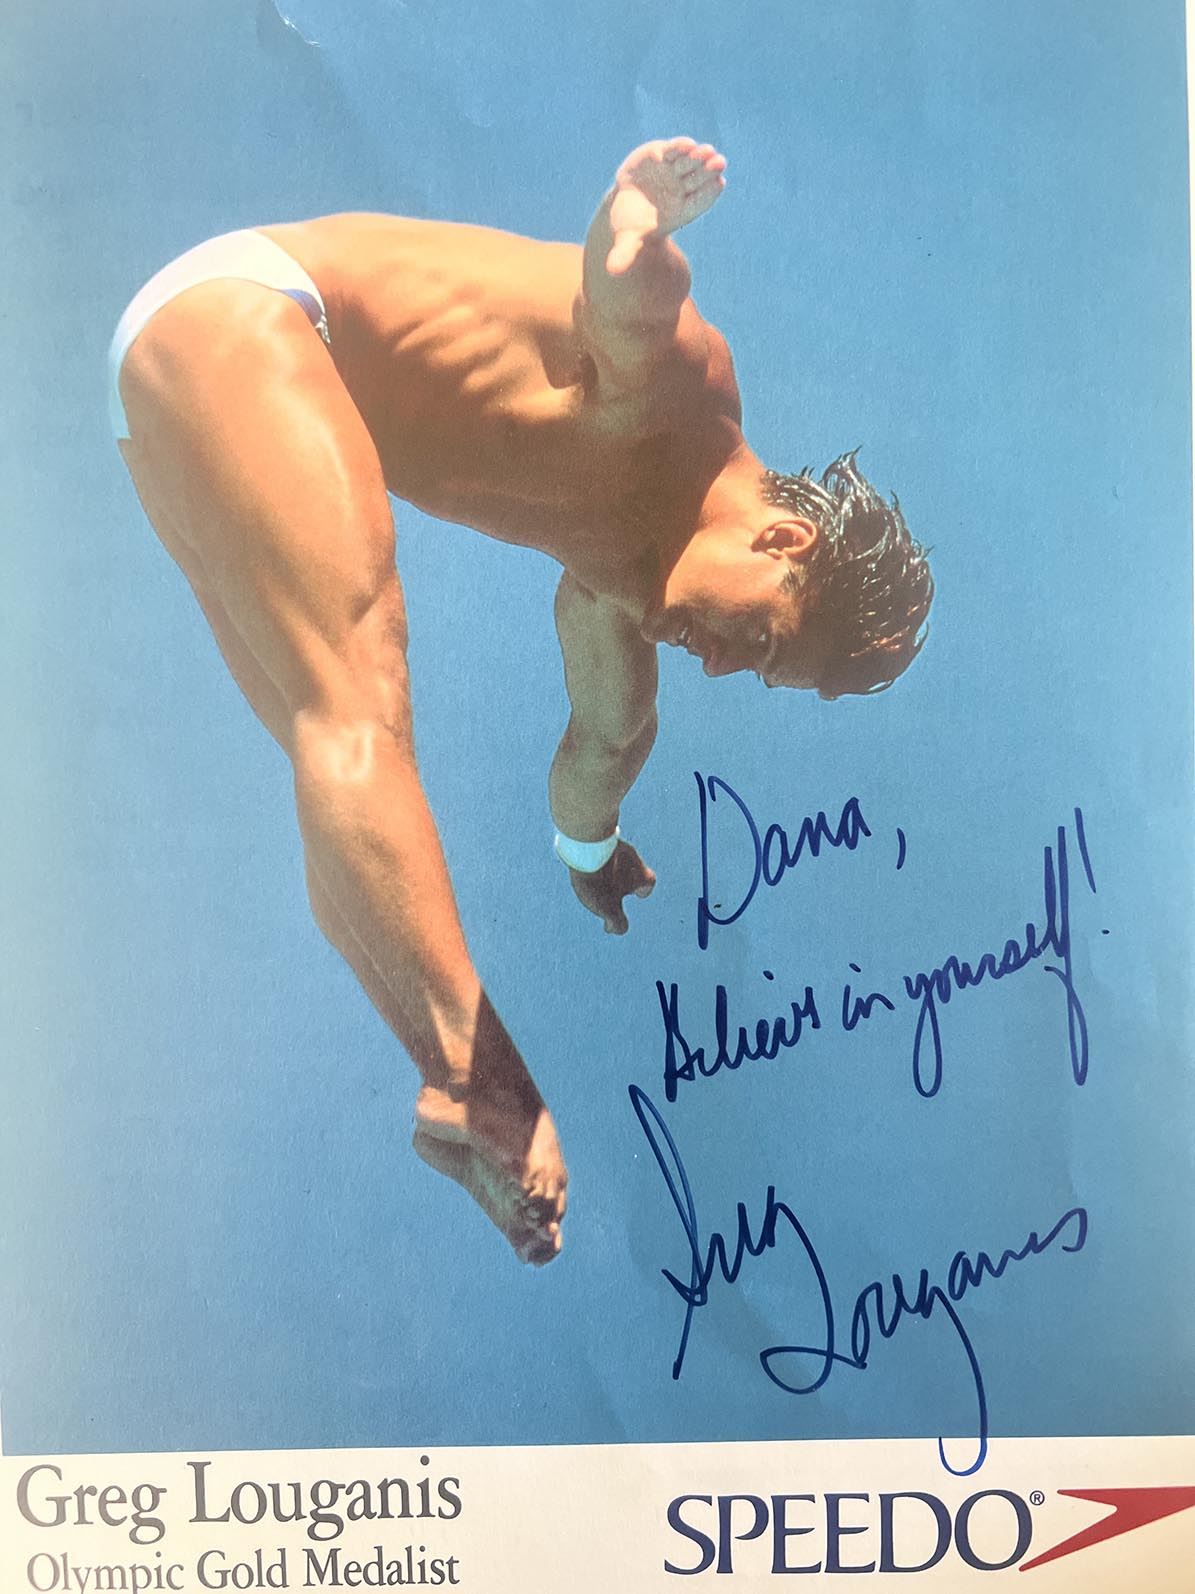 Dana,
Believe in yourself!
Greg
Louganis
Greg Louganis
Olympic Gold Medalist
SPEEDO®